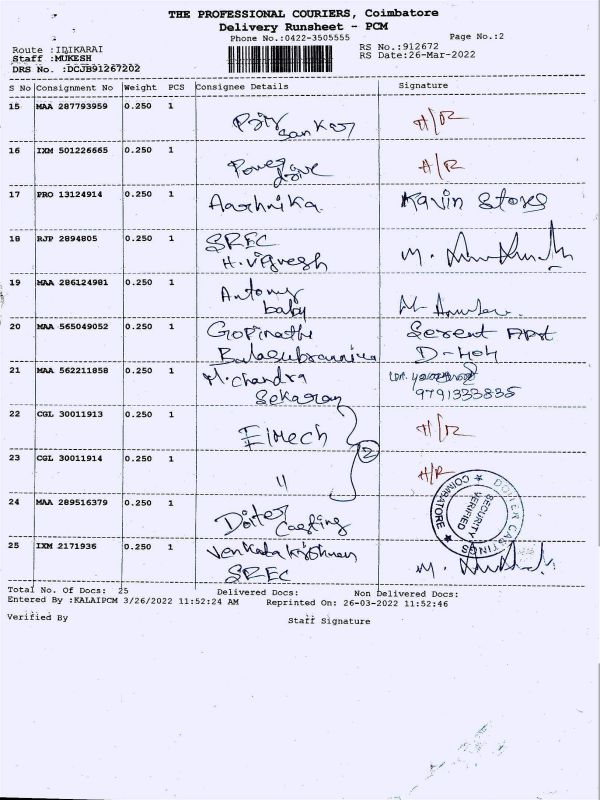 THE PROFESSIONAL COURIERS, Coimbatore
Delivery Runsheet - PCM
Phone No.:0422-3505555
Page No.:2
Route :IDIKARAI
RS No.:912672
Staff :MUKESH
RS Date:26-Mar-2022
DRS No. :DCJB91267202
S No Consignment No Weight PCS Consignee Details Signature
15 MAA 287793959 0.250 1 H/R
16 IXM 501226665 0.250 1 H/R
17 PRO 13124914 0.250 1 Aashnika. Kavin Stores
18 RJP 2894805 0.250 1 SREC
H. Vignesh
19 MAA 286124981 0.250 1 Antony
baby
20 MAA 565049052 0.250 1 Gopinath
D-404
21 MAA 562211858 0.250 1 M. Chandra
Sekaran 9791333835
22 CGL 30011913 0.250 1 Elmech H/R
23 CGL 30011914 0.250 1 " 2 H/R
24 MAA 289516379 0.250 1 Doiter
Casting
DOITER CASTINGS
COIMBATORE
SECURITY
VERIFIED
25 IXM 2171936 0.250 1 Venkatakrishnan
SREC
Total No. Of Docs: 25 Delivered Docs: Non Delivered Docs:
Entered By :KALAIPCM 3/26/2022 11:52:24 AM Reprinted On: 26-03-2022 11:52:46
Verified By Staff Signature